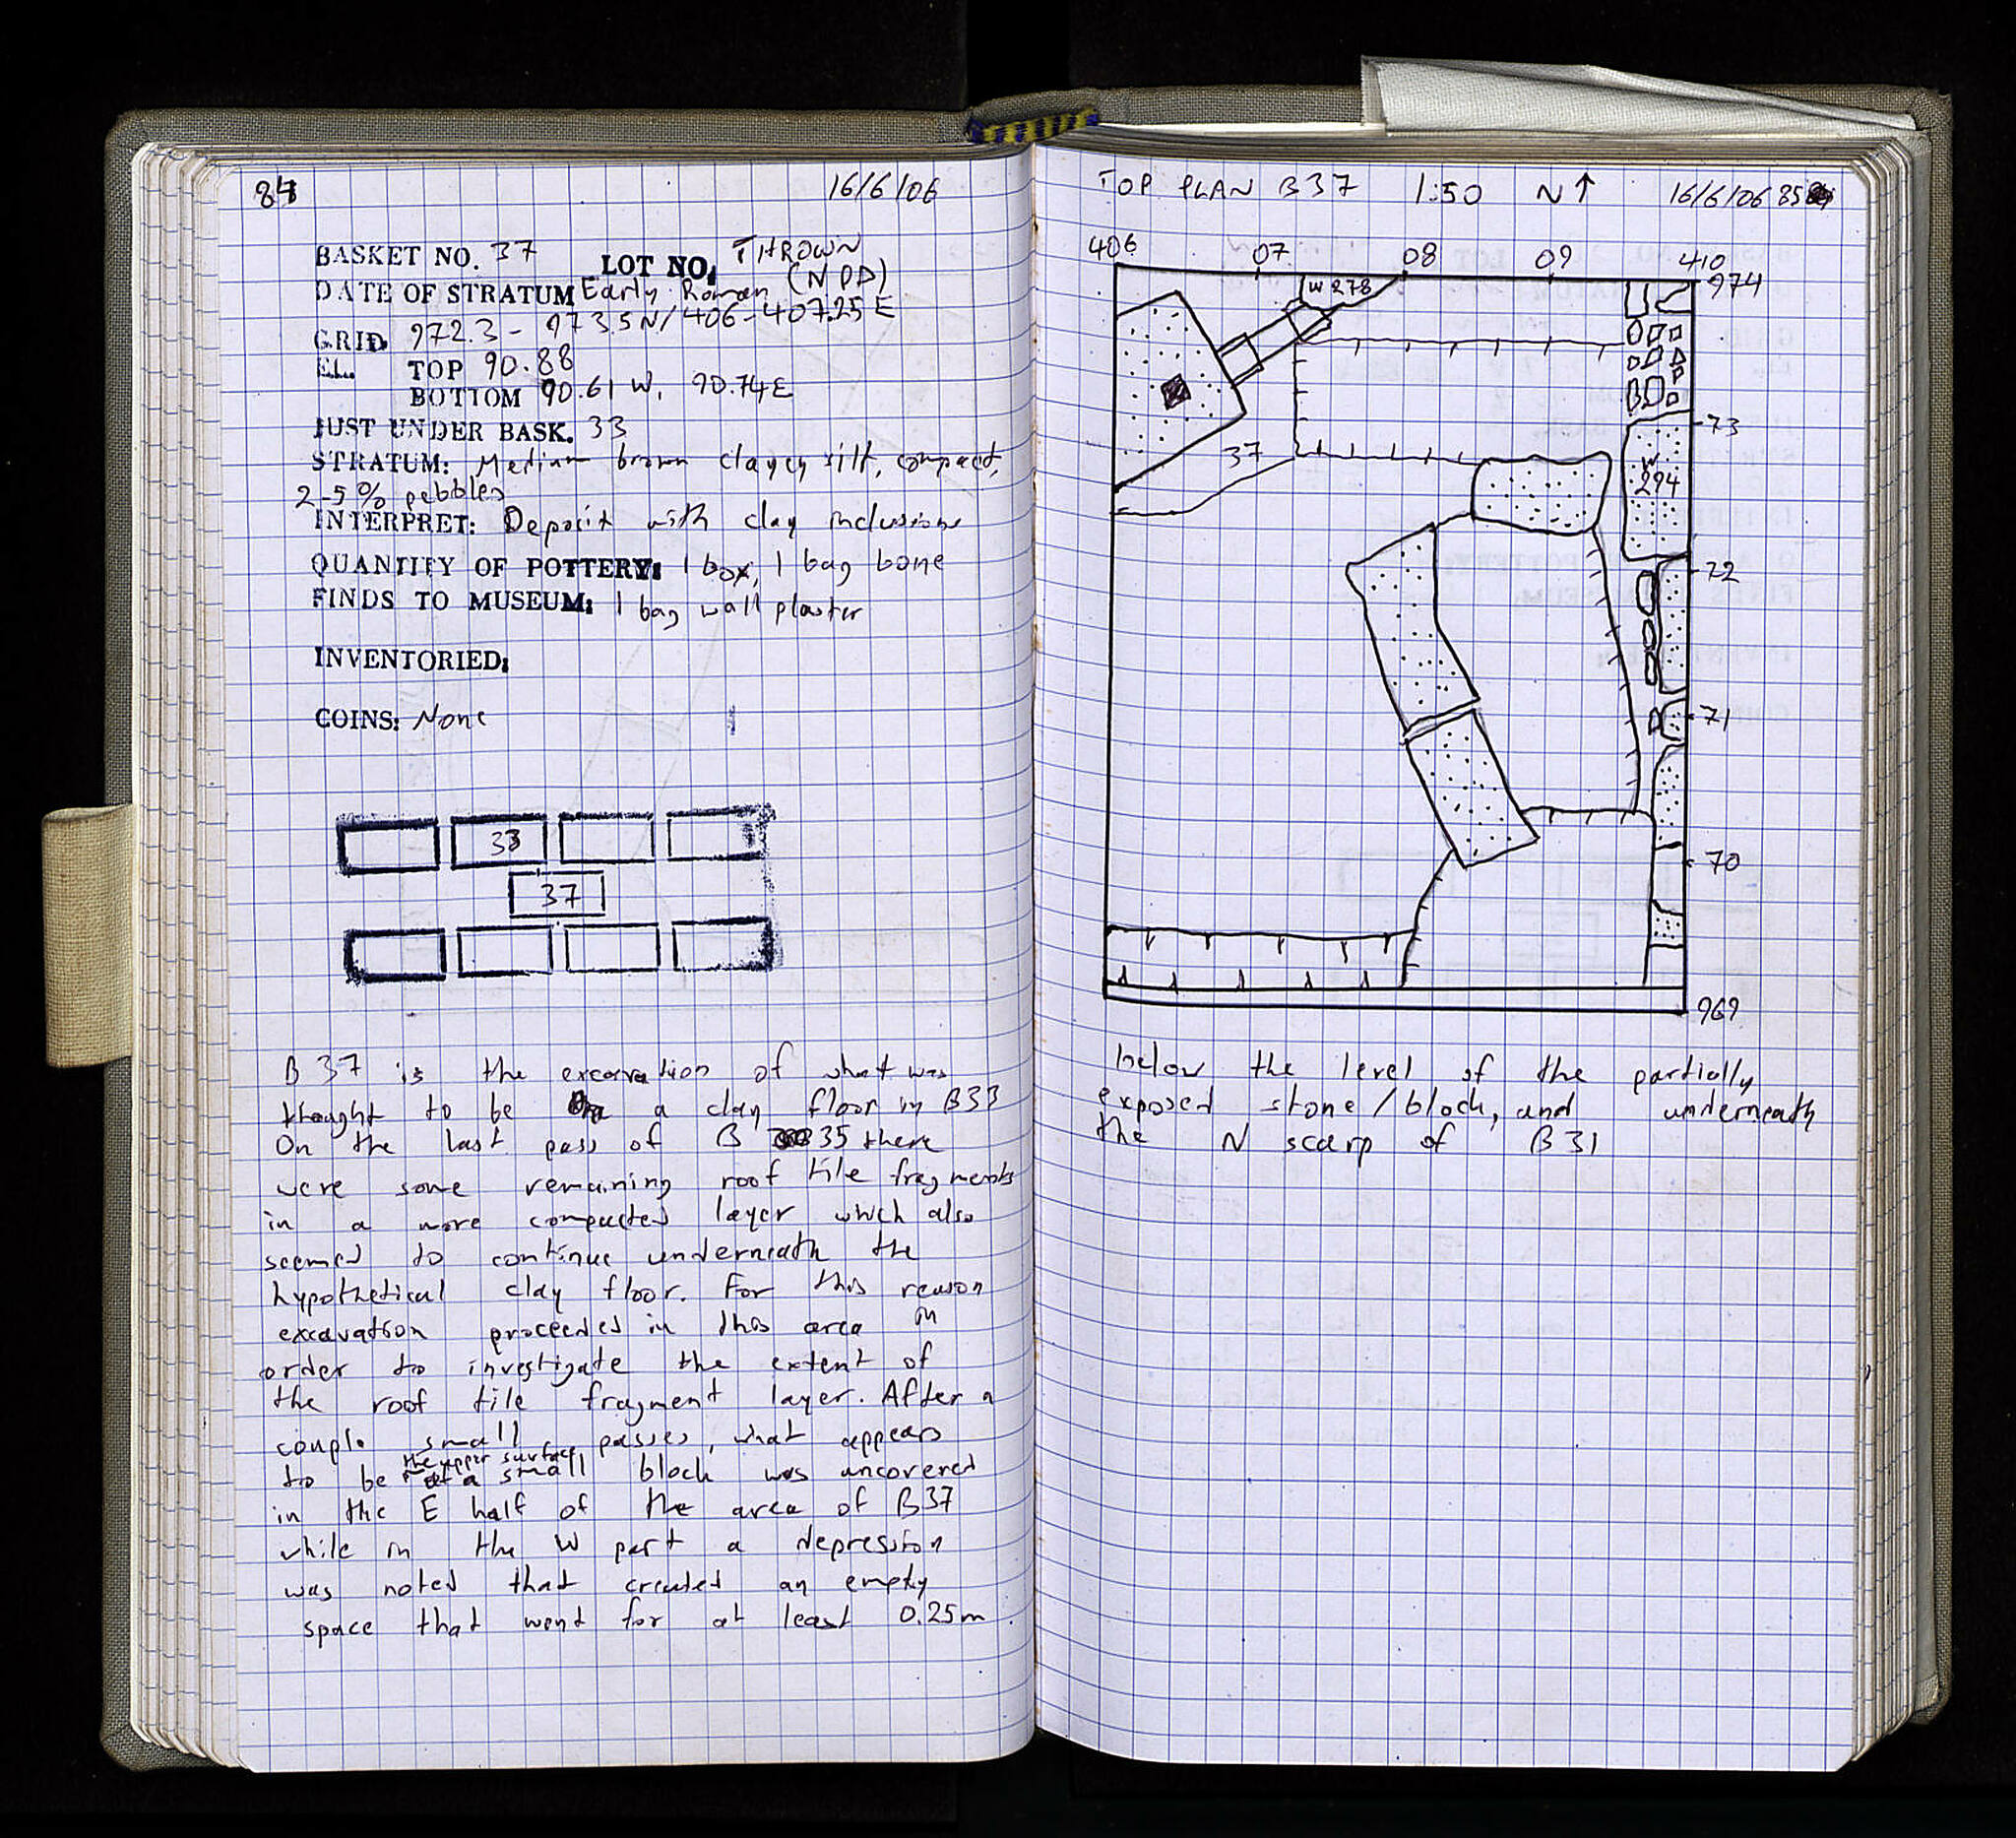 84
16/6/06
BASKET NO. 37 LOT NO. THROWN
(NPD)
DATE OF STRATUM Early Roman
GRID 972.3 - 973.5N/406-407.25E
EL. TOP 90.88
BOTTOM 90.61 W, 90.74E
JUST UNDER BASK. 33
STRATUM: Medium brown clayey silt, compact,
2-5% pebbles
INTERPRET: Deposit with clay inclusions
QUANTITY OF POTTERY: 1 box, 1 bag bone
FINDS TO MUSEUM: 1 bag wall plaster
INVENTORIED:
COINS: None
33
37
B 37 is the excavation of what was
thought to be a clay floor in B33
On the last pass of B 35 there
were some remaining roof tile fragments
in a more compacted layer which also
seemed to continue underneath the
hypothetical clay floor. For this reason
excavation proceeded in this area in
order to investigate the extent of
the roof tile fragment layer. After a
couple small passes, what appears
to be the upper surface of a small block was uncovered
in the E half of the area of B37
while in the W part a depression
was noted that created an empty
space that went for at least 0.25m
TOP PLAN B37 1:50 N↑ 16/6/06 85
406 07 08 09 410
974
W 278
73
37
W
294
72
71
70
969
below the level of the partially
exposed stone/block, and underneath
the N scarp of B31